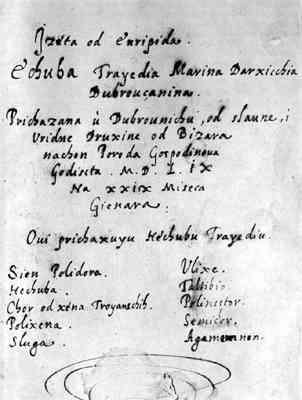 Izeta od Euripida.
Echuba Trayedia Marina Darxicchia
Dubrouçanina.
Prichazana ù Dubrounichu, od slaune, i
Vridne Druxine od Bizara
nachon Poroda Gospodinoua
Godiscta . M. D. L. IX
Na XXIX Miseca
Gienara.
Oui prichaxuyu Hechubu Trayediu.
Sien Polidora.
Hechuba.
Chor od xéna Troyanschih.
Polixena.
Sluga.
Vlixe.
Taltibio.
Polinestor.
Semicor.
Agamemnon.